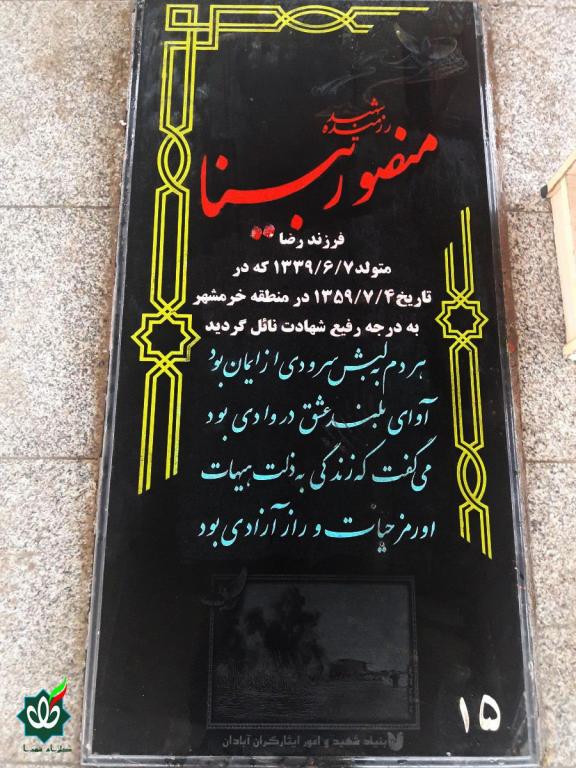 شهید
رزمنده
منصور بینا
فرزند رضا
متولد ۱۳۳۹/۶/۷ که در
تاریخ ۱۳۵۹/۷/۴ در منطقه خرمشهر
به درجه رفیع شهادت نائل گردید
هر دم به لبش سرودی از ایمان بود
آوای بلند عشق در وادی بود
می گفت که زندگی به ذلت هیهات
او رمز حیات و راز آزادی بود
بنیاد شهید و امور ایثارگران آبادان
۱۵